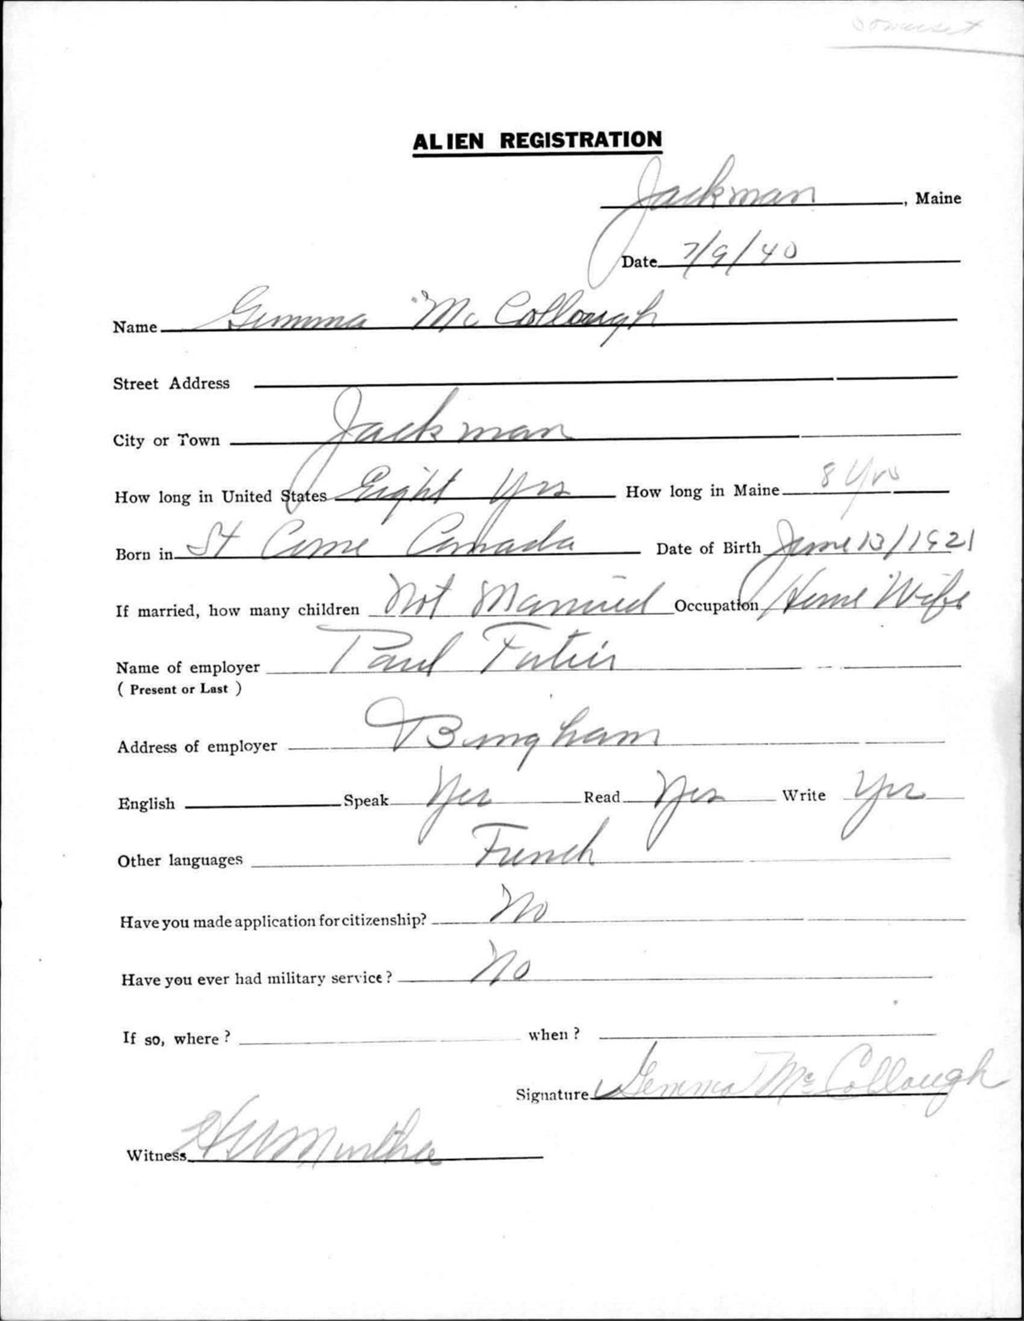 Somerset
ALIEN REGISTRATION
Jackman, Maine
Date 7/9/40
Name Gemma McCollough
Street Address
City or Town Jackman
How long in United States Eight Yrs How long in Maine 8 Yrs
Born in St Come Canada Date of Birth June 13/1921
If married, how many children Not Married Occupation Home Wife
Name of employer Paul
( Present or Last )
Address of employer Bingham
English Speak Yes Read Yes Write Yes
Other languages French
Have you made application for citizenship? No
Have you ever had military service? No
If so, where? when?
Signature Gemma McCollough
Witness